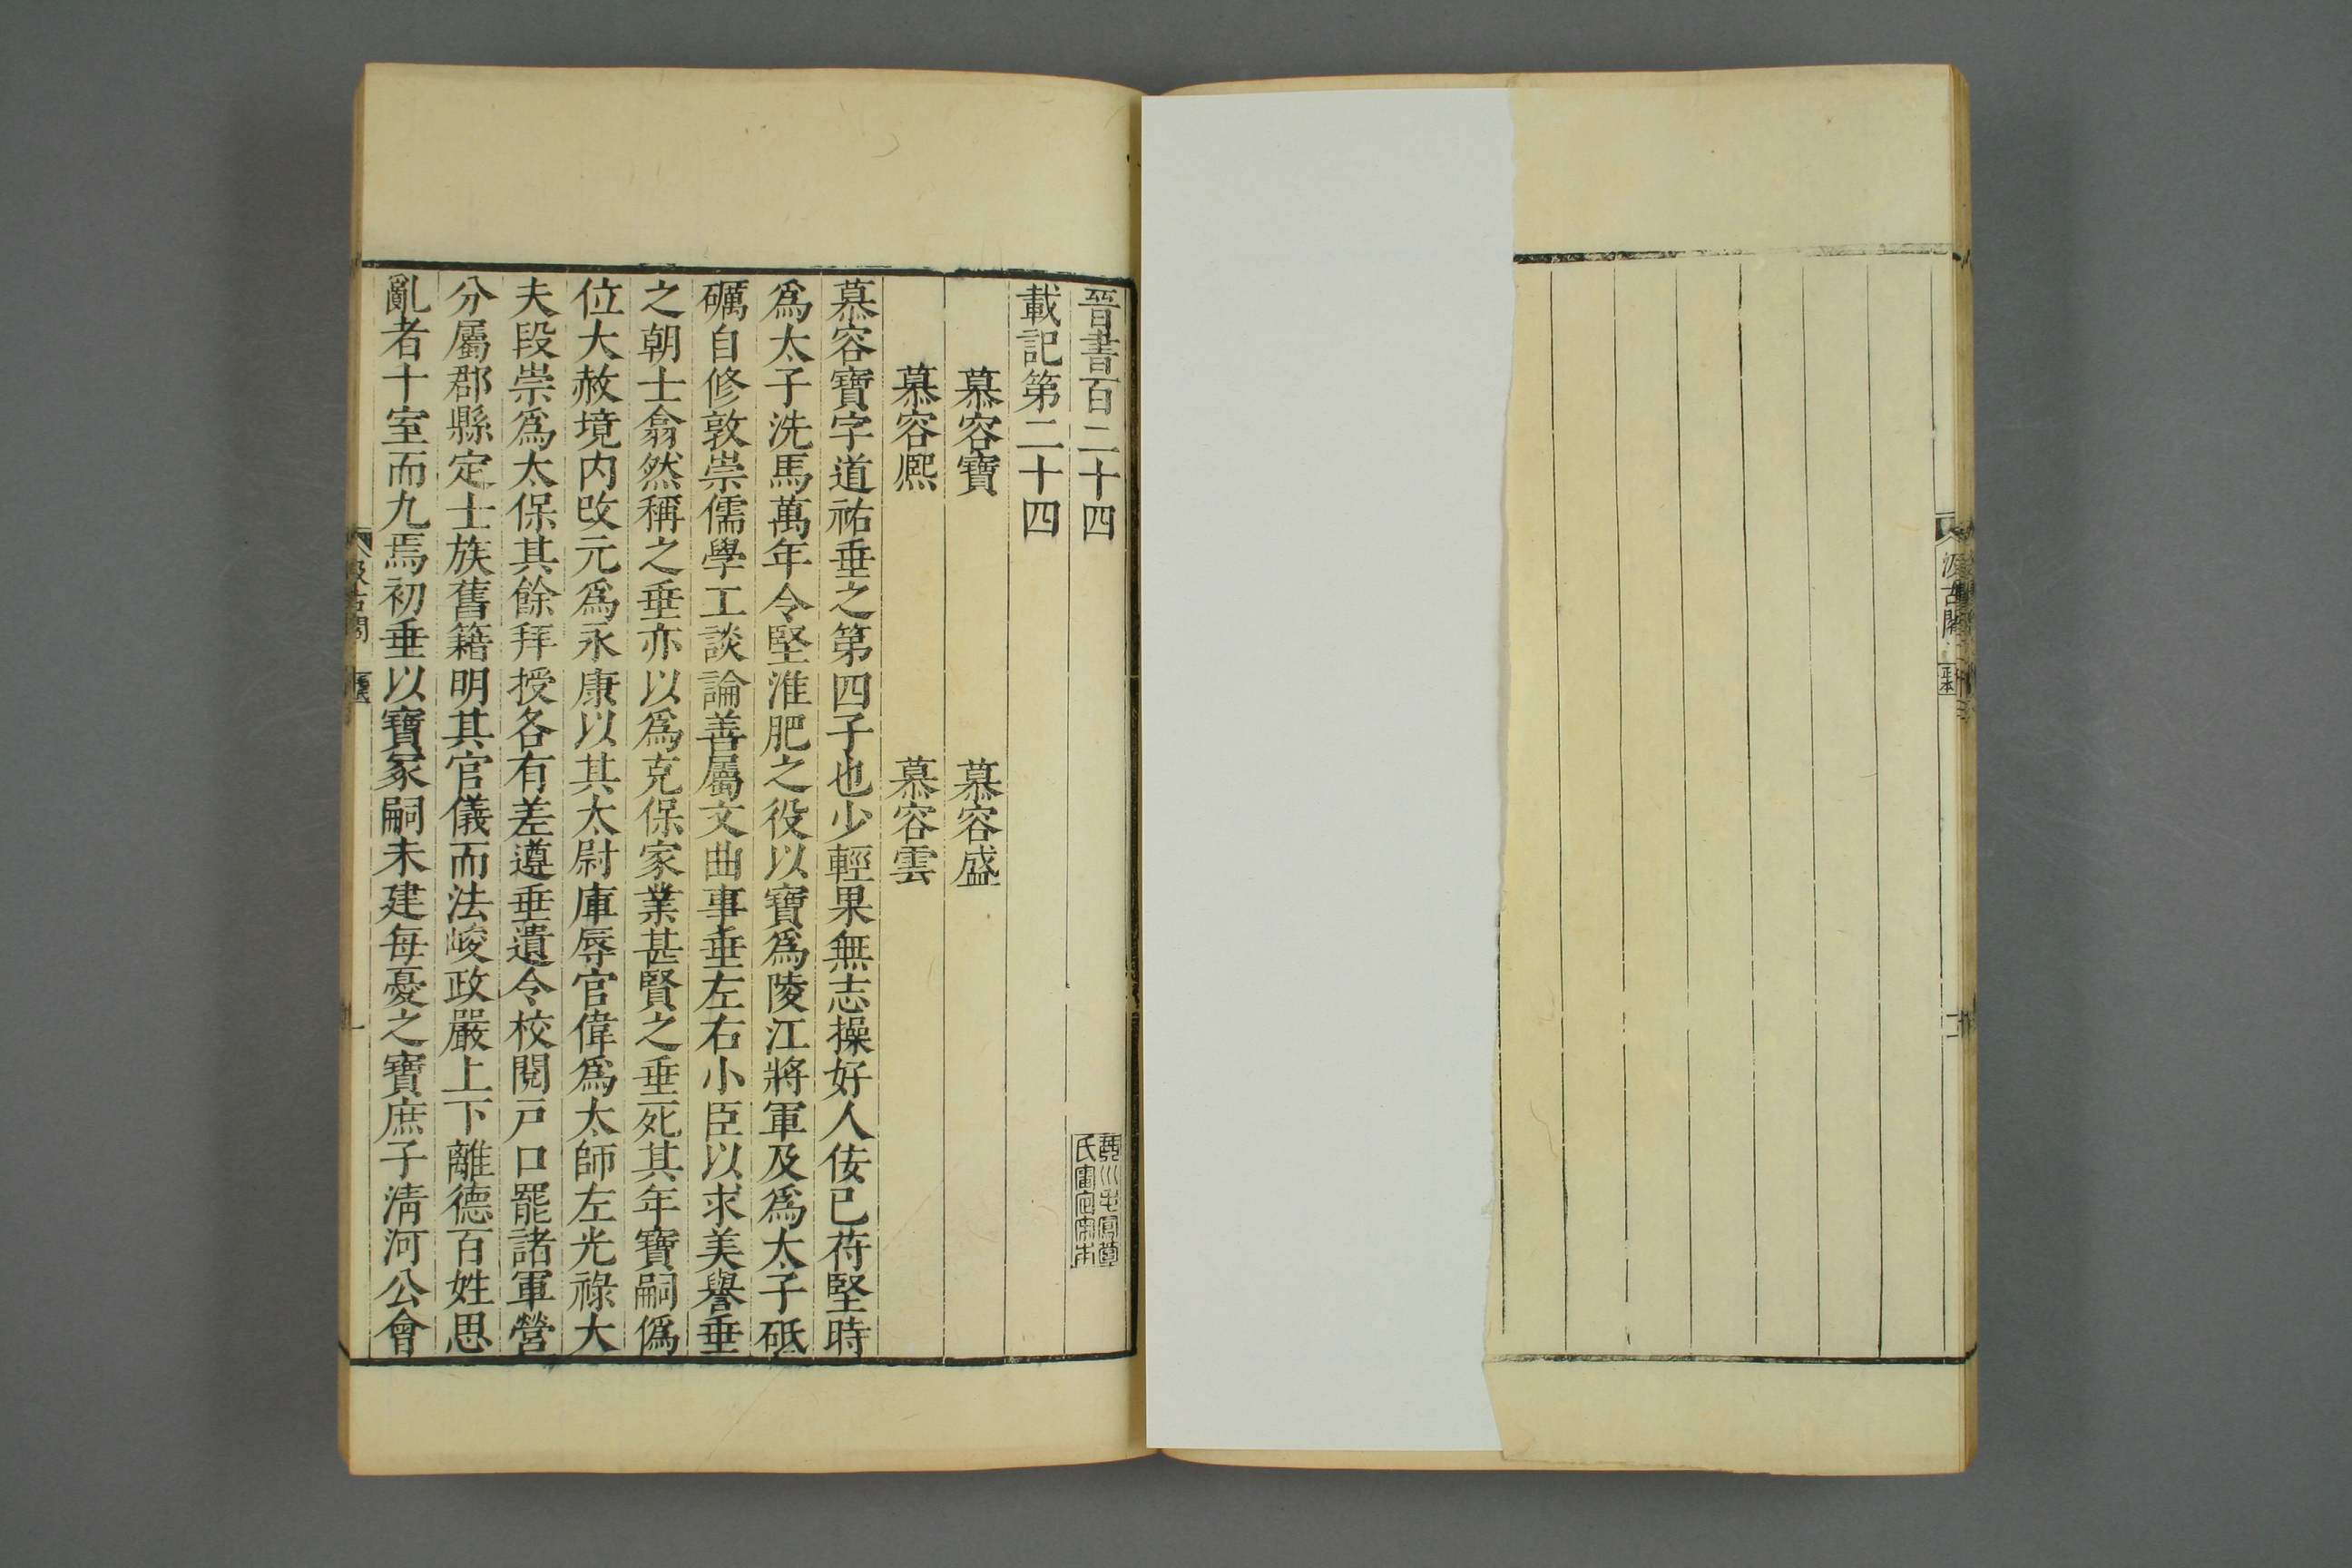 汲古閣
正本
晉書百二十四
載記第二十四
慕容寶 慕容盛
慕容熙 慕容雲
慕容寶字道祐垂之第四子也少輕果無志操好人佞已苻堅時
爲太子洗馬萬年令堅淮肥之役以寶爲陵江將軍及爲太子砥
礪自修敦崇儒學工談論善屬文曲事垂左右小臣以求美譽垂
之朝士翕然稱之垂亦以爲克保家業甚賢之垂死其年寶嗣僞
位大赦境内改元爲永康以其太尉庫辱官偉爲太師左光祿大
夫段崇爲太保其餘拜授各有差遵垂遺令校閱戸口罷諸軍營
分屬郡縣定士族舊籍明其官儀而法峻政嚴上下離德百姓思
亂者十室而九焉初垂以寶冢嗣未建每憂之寶庶子淸河公會
汲古閣
一